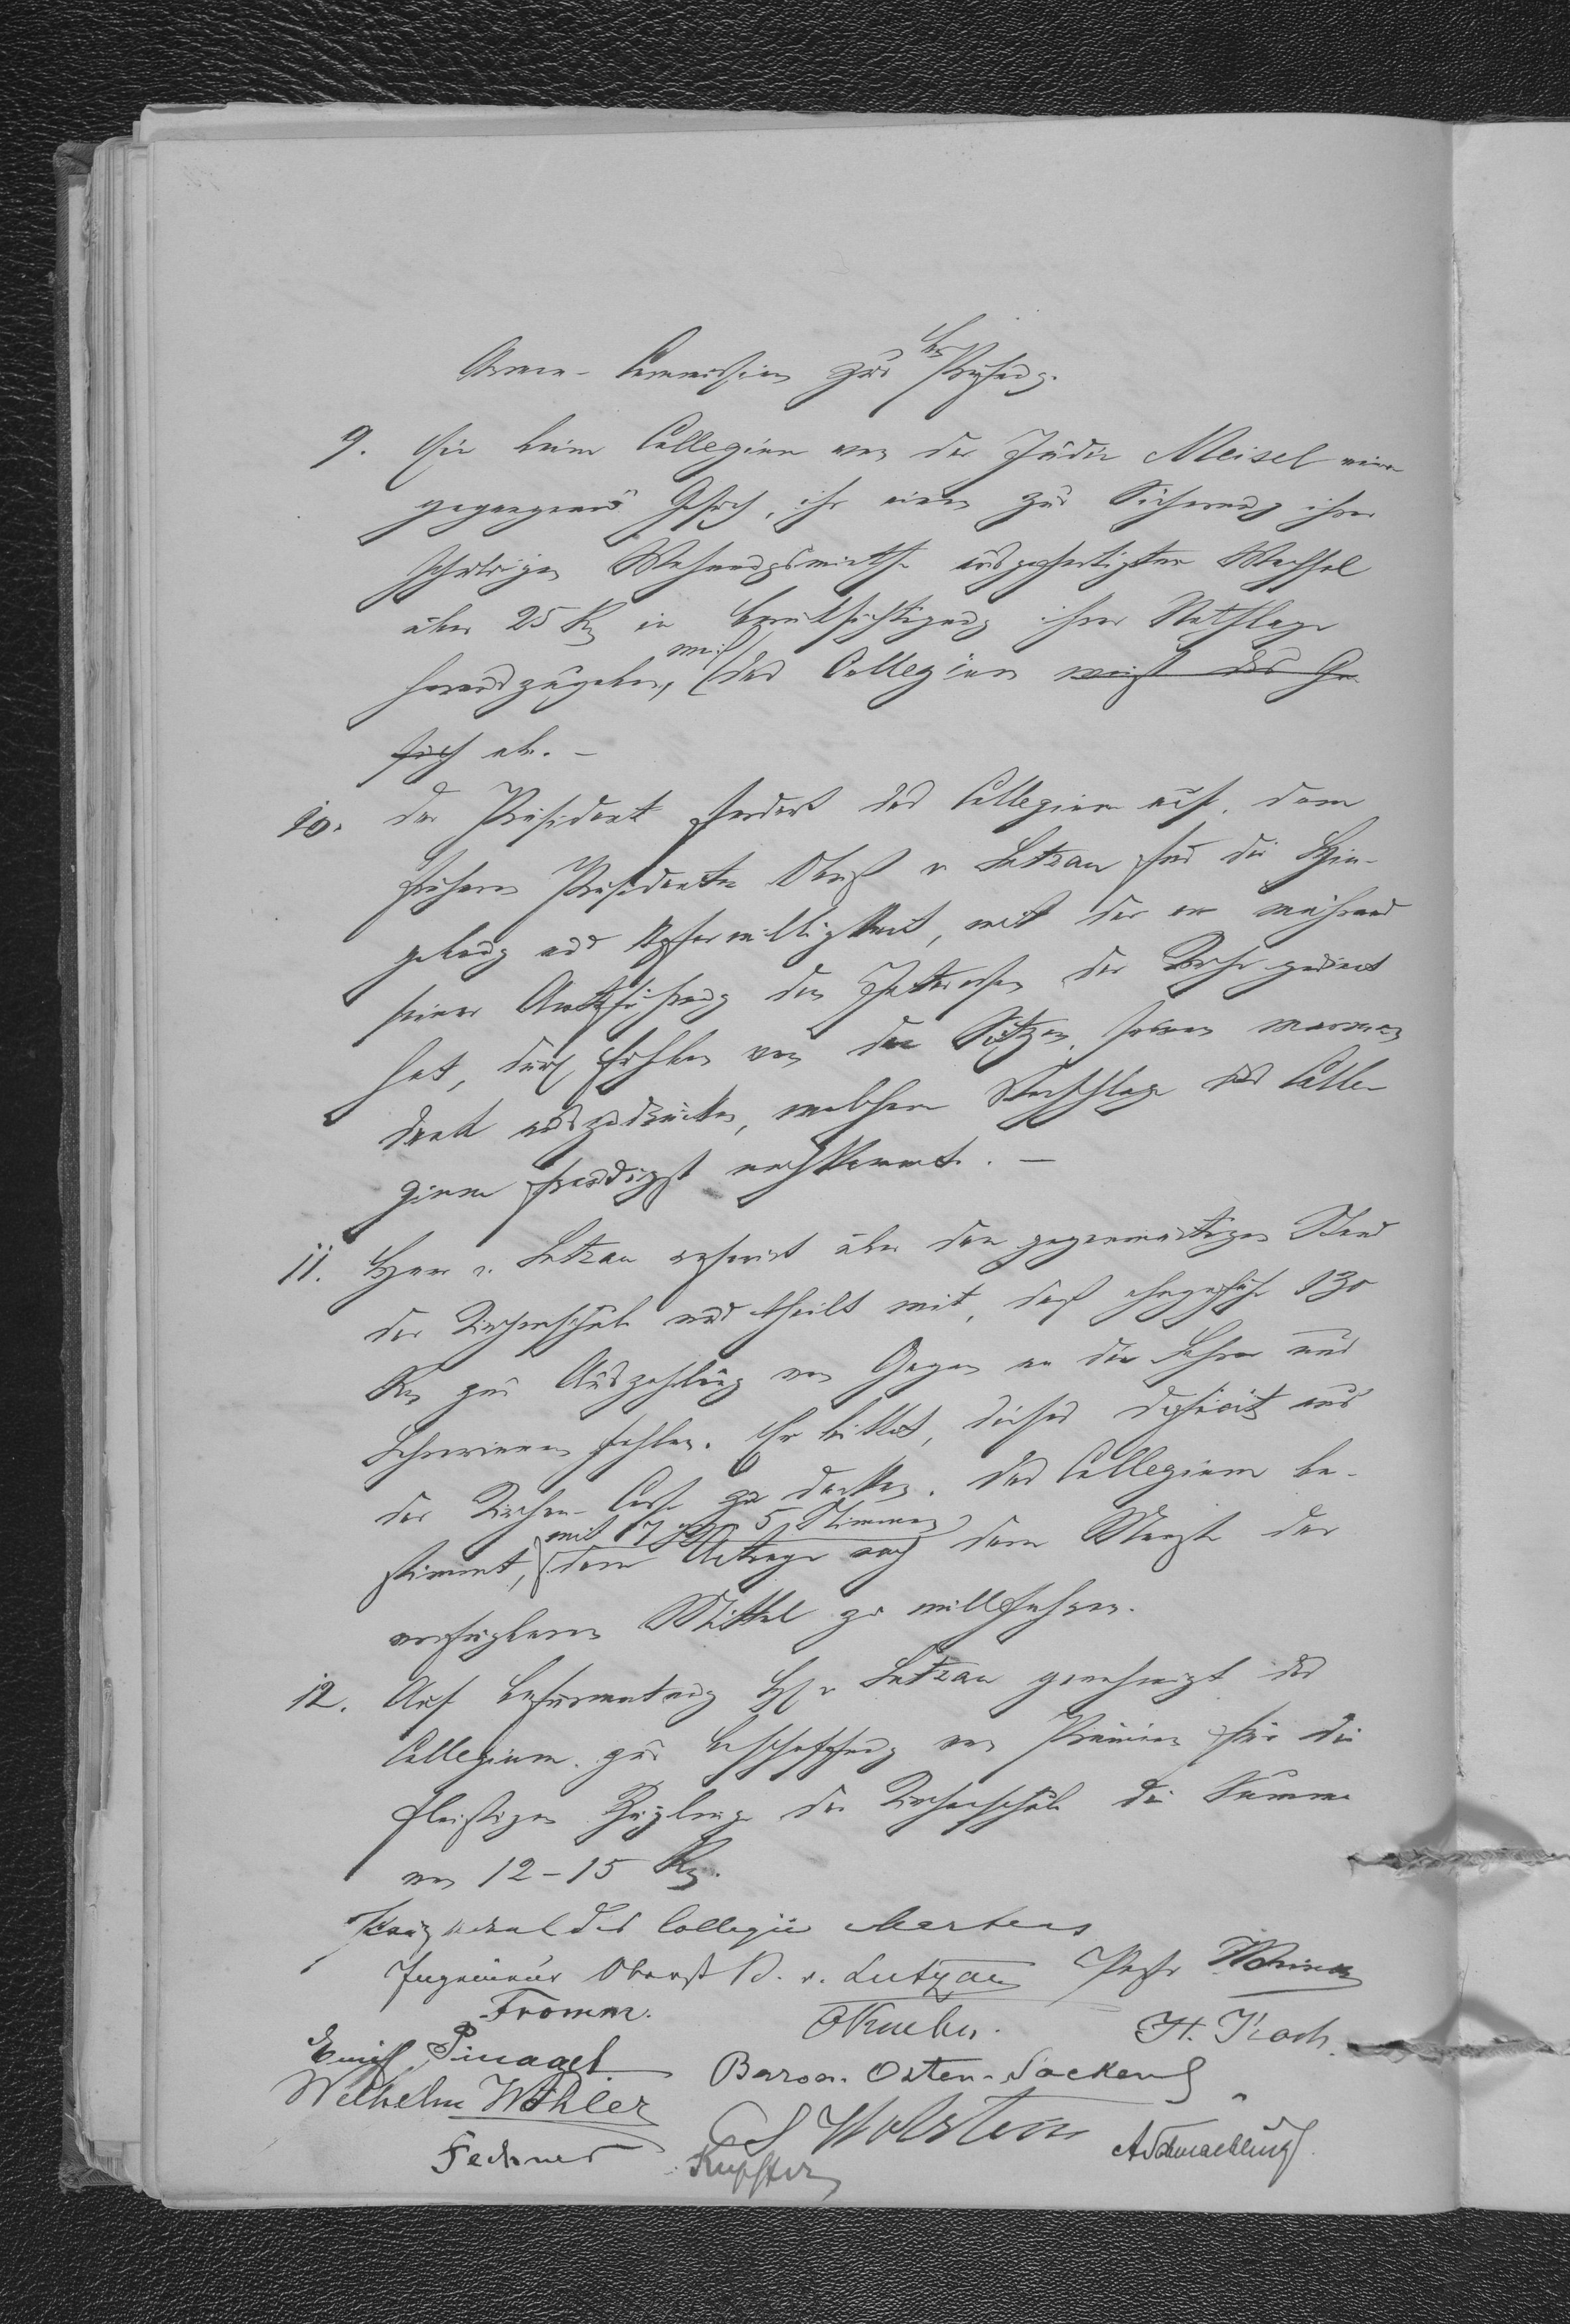 Armen-Commission zur Prüfung.
9. Ein beim Collegium von der Jüdin Meisel ein-
gegangenes Gesuch, ihr einen zur Sicherung ihrer
schuldigen Wohnungsmiethe ausgefertigten Wechsel
über 25 Rb in Berücksichtigung ihrer Nothlage
herauszugeben, weist das Collegium weist das Ge-
such ab. –
10. Der Präsident fordert das Collegium auf, dem
früheren Präsidenten Obrist v Lutzau für die Hin-
gebung und Opferwilligkeit, mit der er während
seiner Amtsführung den Interessen der Kirche gedient
hat, durch Erheben von den Sitzen seinen warmen
Dank auszudrücken, welchem Vorschlage das Colle-
gium freudigst nachkommt. –
11. Herr v. Lutzau referirt über den gegenwärtigen Stand
der Kirchenschule und theilt mit, daß ohngefähr 130
Rb zur Auszahlung von Gagen an die Lehrer und
Lehrerinnen fehlen. Er bittet, dieses Deficit aus
der Kirchen-Casse zu decken. Das Collegium be-
mit 17 gegen 5 Stimmen
stimmt, dem Antrage nach dem Maaße der
verfügbaren Mittel zu willfahren.
12. Auf Befürwortung H v Lutzau genehmigt das
Collegium zur Beschaffung von Prämien für die
fleißigen Zöglinge der Kirchenschule die Summe
von 12–15 Rb.
des Collegii Martens
Ingenieur Oberst B. v. Lutzau Pastor
Fromm. H. Koch.
Emil Pinagel Baron Osten-Sacken
Wilhelm Wöhler Holstein A Schmaeling
Fechner Kupffer